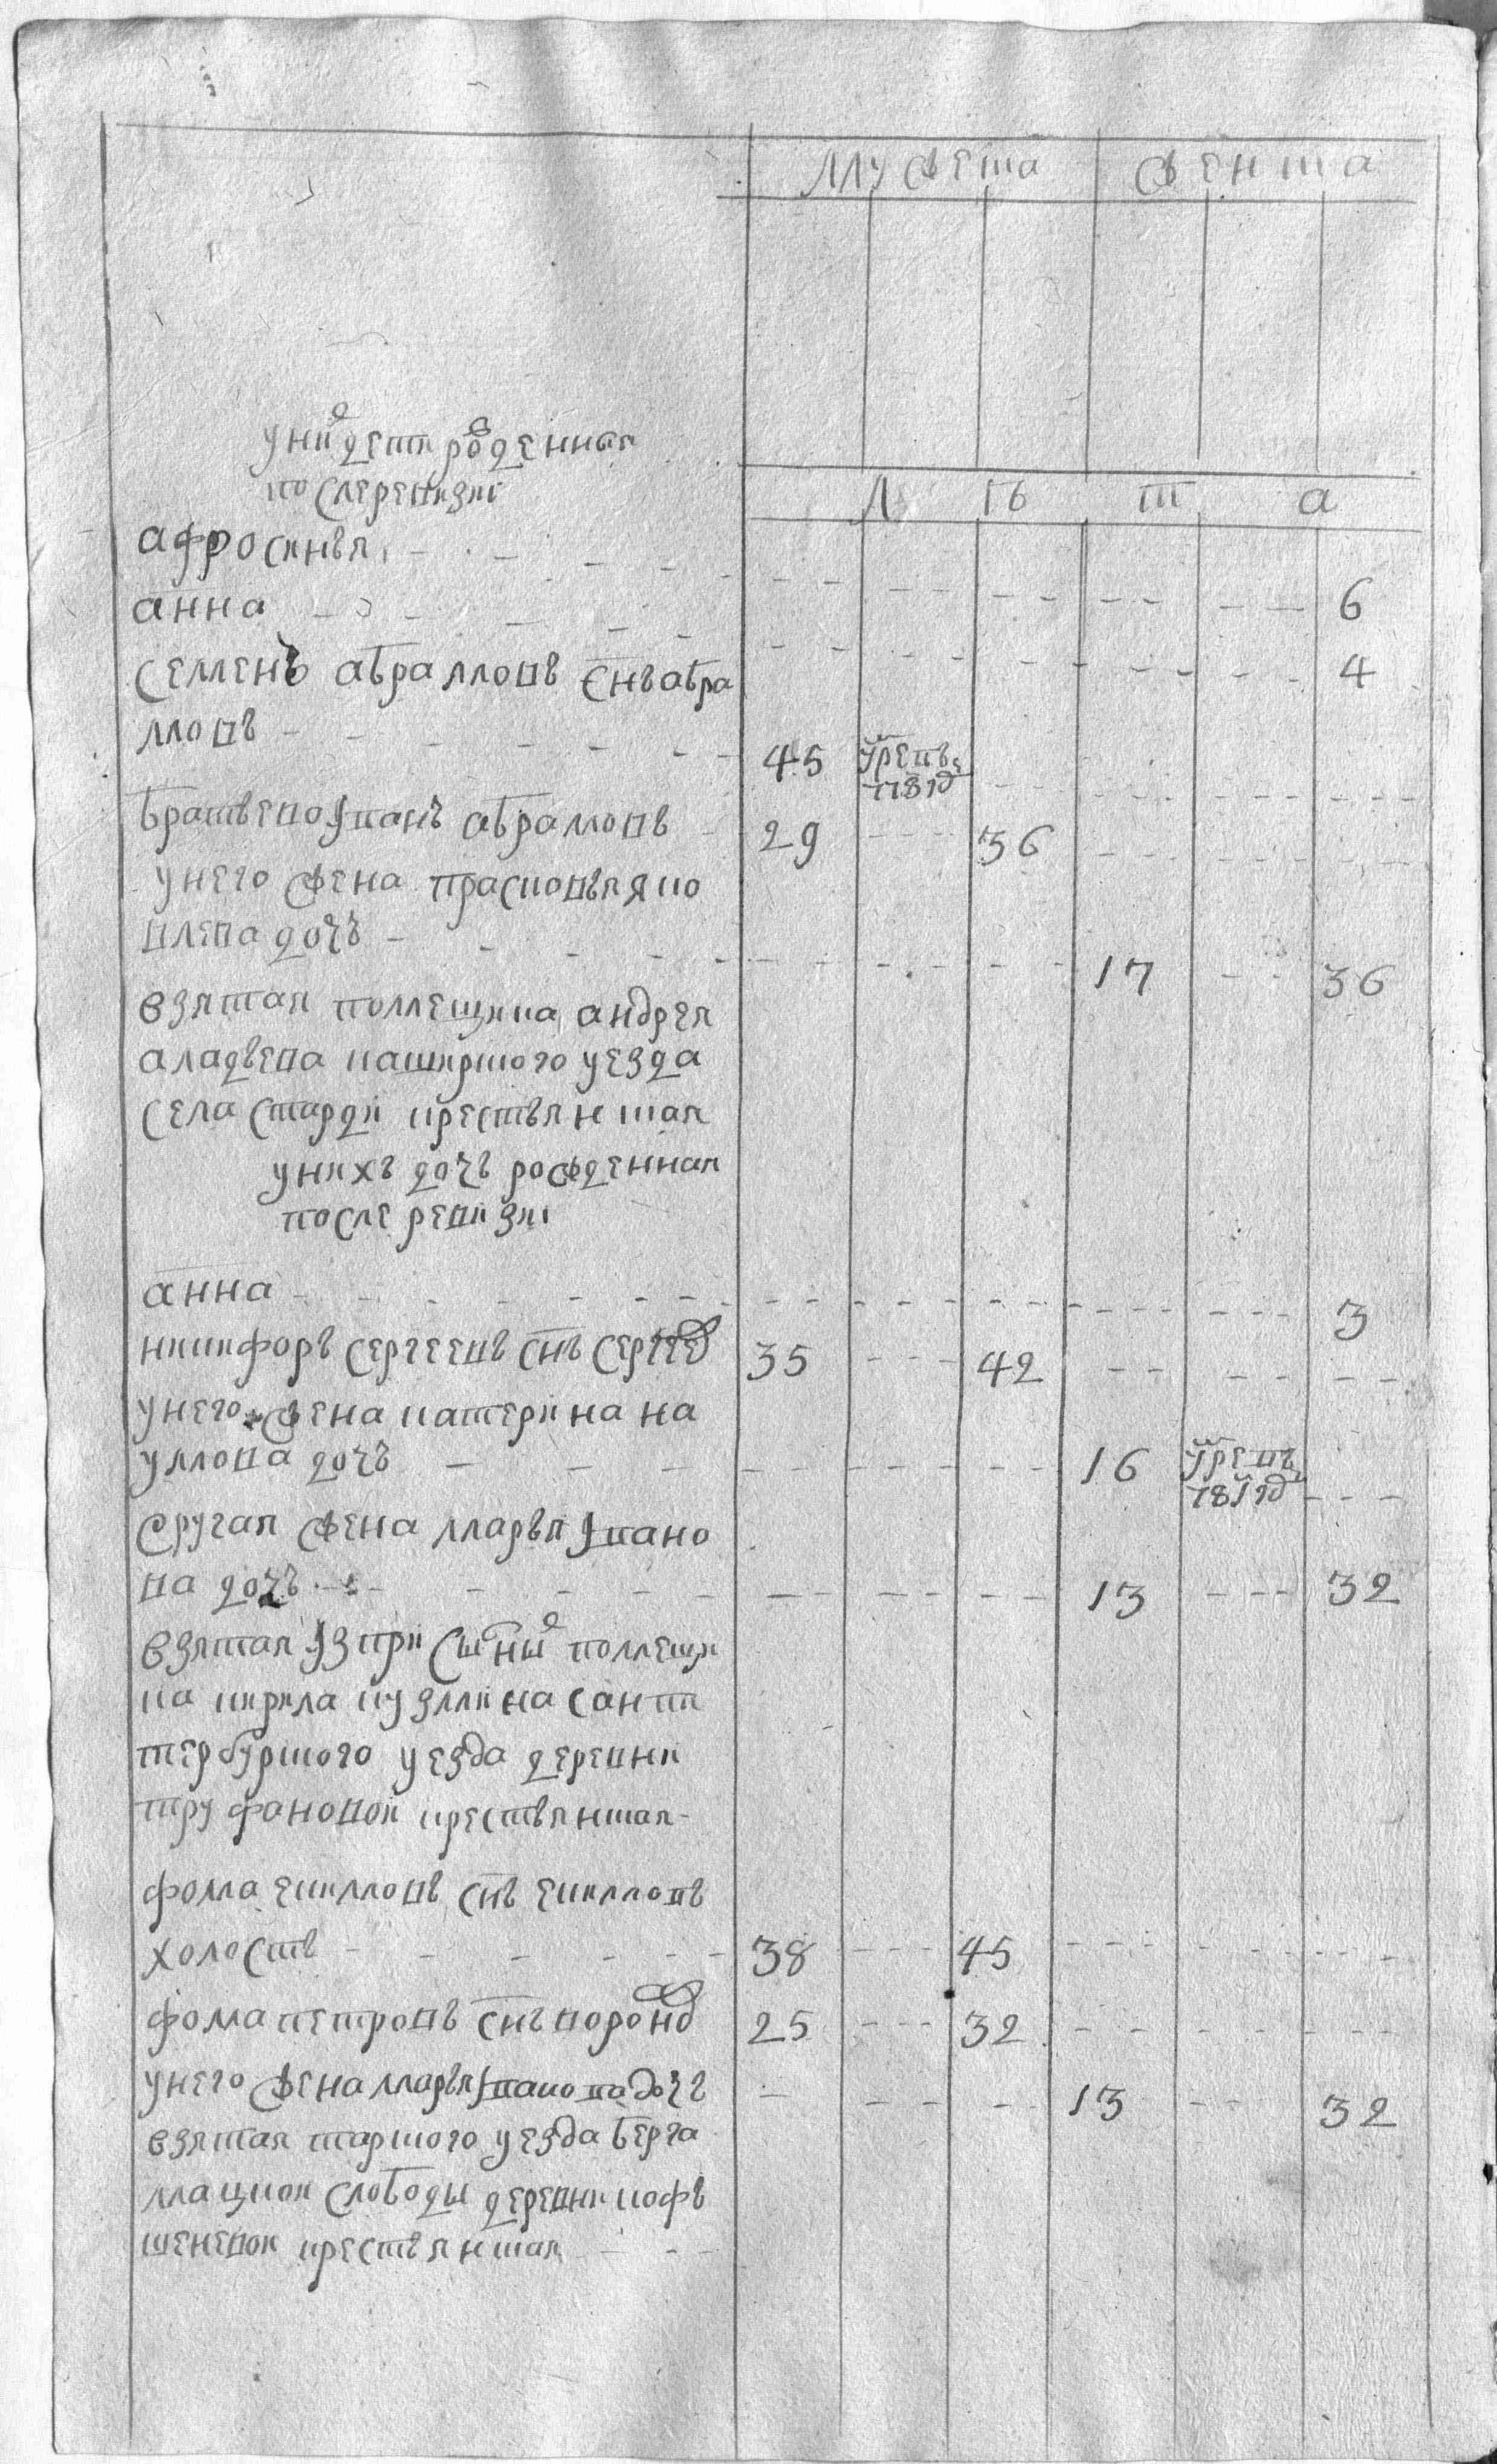 мужеска женска
уних дети рожденныя
после ревизии
л ѣ т а
афросинья 6
анна 4
семенъ абрамовъ снъ абра
мовъ 45 умре въ
178 год
братъ ево иванъ абрамовъ 29 36
у него жена прасковья яко
влева дочъ 17 36
взятая помещика андрея
аладьева каширского уезда
села старди крестьянская
унихъ дочъ рожденная
после ревизии
анна 3
никифоръ сергеевъ снъ сергеев 35 42
унего жена катерина на
умова дочъ 16 умре въ
178 год
другая жена марья ивано
ва дочъ 13 32
взятая из при помещи
ка кирила кузмина санкпи
тербурского уезда деревни
труфановой крестьянская
фома екимовъ снъ екимовъ
холостъ 38 45
фома петровъ снъ воронов 25 32
унего жена марья иванова дочъ 13 32
взятая тарского уезда берга
мацкой слободы деревни кофъ
шеневой крестьянская